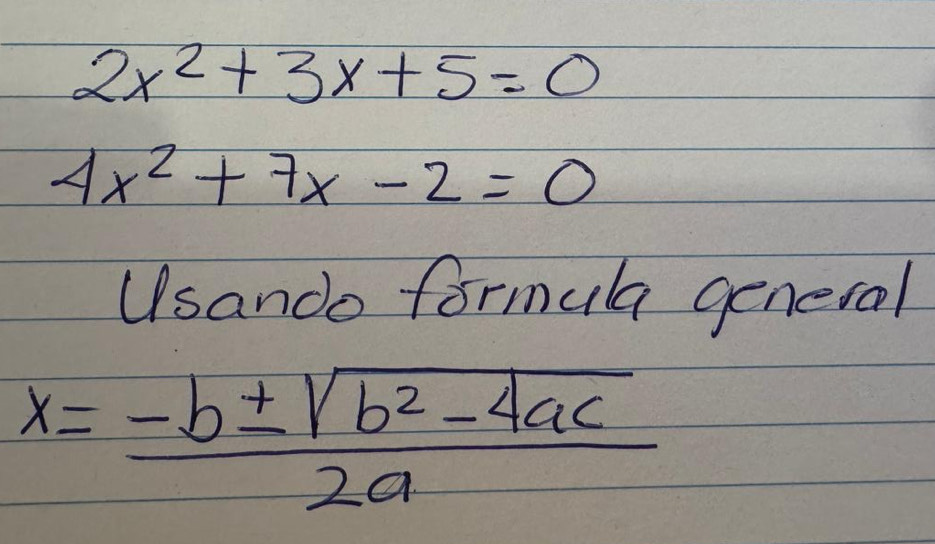 2x² + 3x + 5 = 0
4x² + 7x - 2 = 0
Usando fórmula general
x = -b ± √b² - 4ac
2a